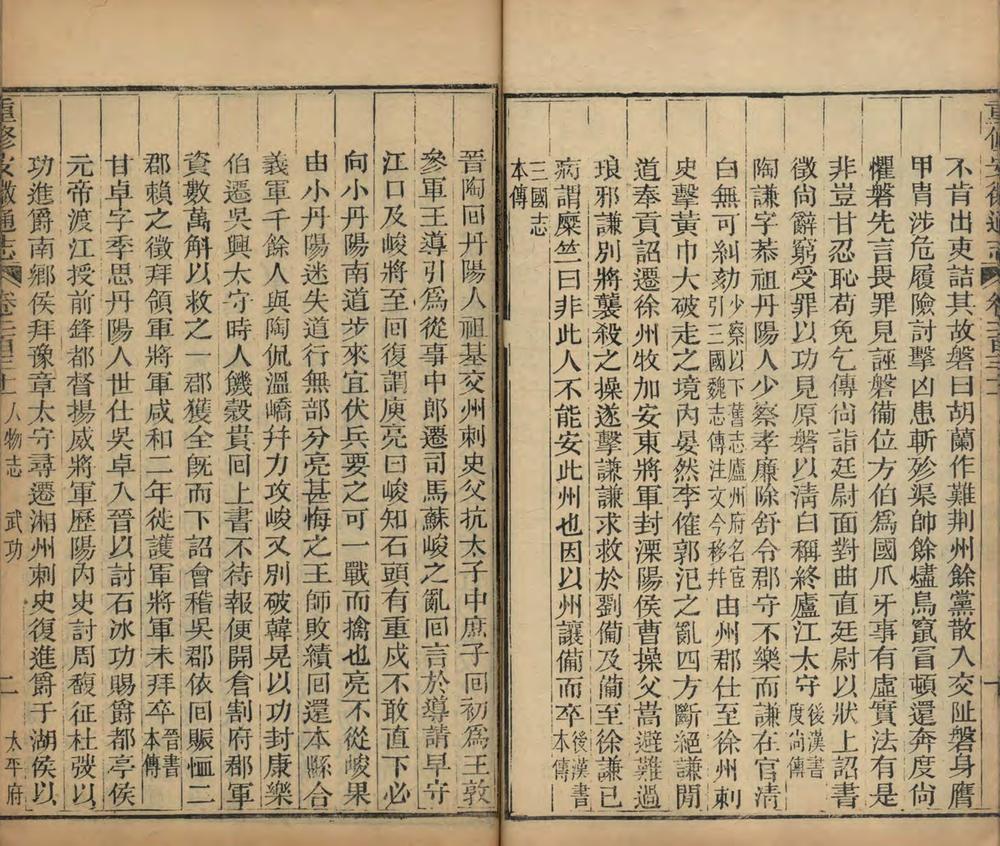 不肯出吏詰其故磐曰胡蘭作難荆州餘黨散入交阯磐身膺
甲冑涉危履險討擊凶患斬殄渠帥餘燼鳥竄冒頓還奔度尙
懼磐先言畏罪見誣磐備位方伯爲國爪牙事有虛實法有是
非豈甘忍恥苟免乞傳尙詣廷尉面對曲直廷尉以狀上詔書
徵尙辭窮受罪以功見原磐以淸白稱終廬江太守後漢書度尙傳
陶謙字恭祖丹陽人少察孝廉除舒令郡守不樂而謙在官淸
白無可糾劾少察以下舊志廬州府名宦引三國魏志傳注文今移幷由州郡仕至徐州刺
史擊黃巾大破走之境內晏然李傕郭汜之亂四方斷絕謙閒
道奉貢詔遷徐州牧加安東將軍封溧陽侯曹操父嵩避難過
琅邪謙別將襲殺之操遂擊謙謙求救於劉備及備至徐謙已
病謂糜竺曰非此人不能安此州也因以州讓備而卒後漢書本傳
三國志本傳
重修安徽通志 卷 人物志 武功 二 太平府
晉陶回丹陽人祖基交州刺史父抗太子中庶子回初爲王敦
參軍王導引爲從事中郎遷司馬蘇峻之亂回言於導請早守
江口及峻將至回復謂庾亮曰峻知石頭有重戍不敢直下必
向小丹陽南道步來宜伏兵要之可一戰而擒也亮不從峻果
由小丹陽迷失道行無部分亮甚悔之王師敗績回還本縣合
義軍千餘人與陶侃溫嶠幷力攻峻又別破韓晃以功封康樂
伯遷吳興太守時人饑穀貴回上書不待報便開倉割府郡軍
資數萬斛以救之一郡獲全旣而下詔會稽吳郡依回賑恤二
郡賴之徵拜領軍將軍咸和二年徙護軍將軍未拜卒晉書本傳
甘卓字季思丹陽人世仕吳卓入晉以討石冰功賜爵都亭侯
元帝渡江授前鋒都督揚威將軍歷陽內史討周馥征杜弢以
功進爵南鄕侯拜豫章太守尋遷湘州刺史復進爵于湖侯以